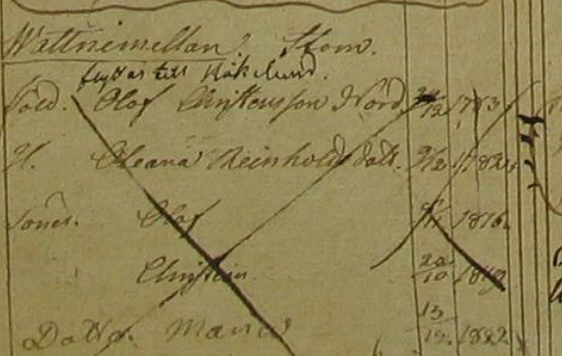 Wattnemellan. Stom.
flyttat till Håkelund.
Sold. Olof Christensson Nord. /12 1783
H. Oleana Reinholdsdotr. /12 1782
Söner. Olof 1816.
Christian 20/10 1819
Dottr. Maria 13/12 1822